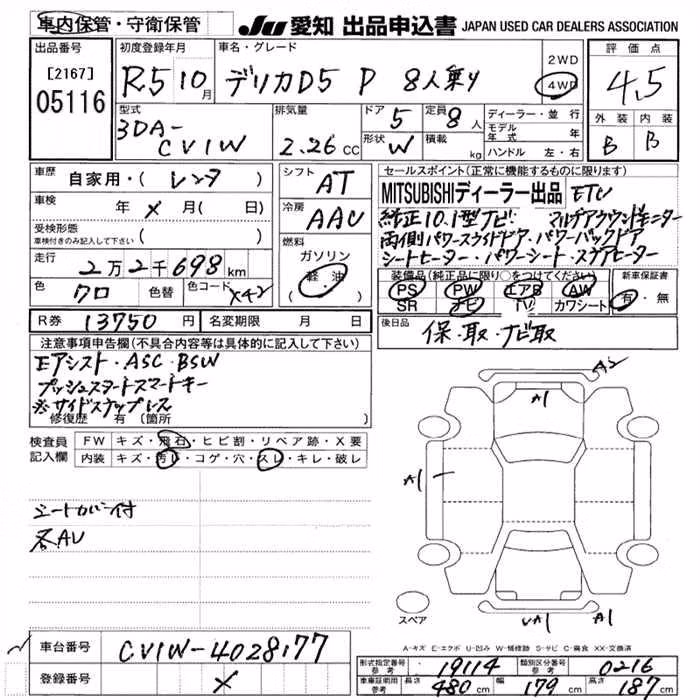 車内保管・守衛保管
JU 愛知 出品申込書 JAPAN USED CAR DEALERS ASSOCIATION
出品番号
[2167]
05116
初度登録年月
R5 10月
車名・グレード
デリカD5 P 8人乗り
2WD
4WD
評価点
4.5
外装 内装
B B
型式
3DA-
CV1W
排気量
2.26 CC
ドア 5
形状 W
定員 8人
積載 kg
ディーラー・並行
モデル年式 年
ハンドル 左・右
車歴 自家用・( レンタ )
車検 年 メ 月( 日)
受検形態
車検付きのみ記入して下さい ( )
走行 2万2千698km
色 クロ 色替 色コード X42
シフト AT
冷房 AAC
燃料
ガソリン
軽・油
セールスポイント(正常に機能するものに限ります)
MITSUBISHIディーラー出品 ETC
純正10.1型ナビ マルチアラウンドモニター
両側パワースライドドア・パワーバックドア
シートヒーター・パワーシート・ステアヒーター
装備品(純正品に限り○をつけてください)
PS PW エアB AW
SR ナビ TV カワシート
新車保証書
有・無
後日品 保・取・ナビ取
R券 13750円 名変期限 月 日
注意事項申告欄(不具合内容等は具体的に記入して下さい)
Eアシスト・ASC・BSW
プッシュスタートスマートキー
※サイドステップレス
修復歴 有 〔箇所 〕
検査員記入欄
FW キズ・飛石・ヒビ割・リペア跡・X要
内装 キズ・汚レ・コゲ・穴・スレ・キレ・破レ
シートカバー付
各AU
A2
A1
A1
UA1
A1
スペア
A-キズ E-エクボ U-凹み W-補修跡 S-サビ C-腐食 XX-交換済
車台番号 CV1W-4028177
登録番号 メ
形式指定番号 参考 19114 類別区分番号 参考 0216
車庫証明用 参考 長さ 480cm 幅 179cm 高さ 187cm